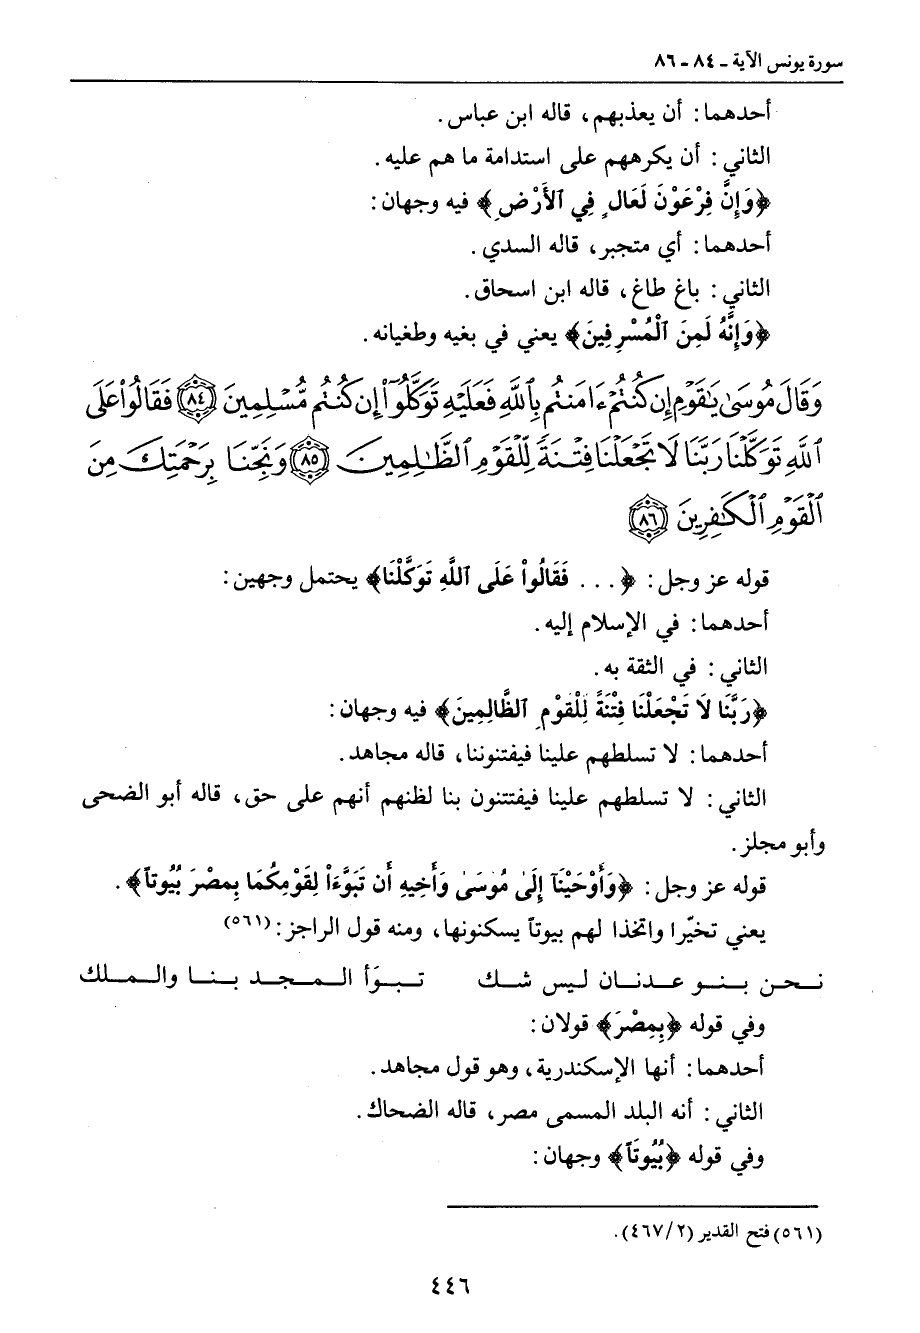 سورة يونس الآية - ٨٤ - ٨٦
أحدهما: أن يعذبهم، قاله ابن عباس.
الثاني: أن يكرههم على استدامة ما هم عليه.
﴿وَإِنَّ فِرْعَوْنَ لَعَالٍ فِي ٱلأَرْضِ﴾ فيه وجهان:
أحدهما: أي متجبر، قاله السدي.
الثاني: باغ طاغ، قاله ابن اسحاق.
﴿وَإِنَّهُ لَمِنَ ٱلْمُسْرِفِينَ﴾ يعني في بغيه وطغيانه.
وَقَالَ مُوسَىٰ يَٰقَوْمِ إِن كُنتُمْ ءَامَنتُم بِٱللَّهِ فَعَلَيْهِ تَوَكَّلُوٓا۟ إِن كُنتُم مُّسْلِمِينَ ﴿٨٤﴾ فَقَالُوا۟ عَلَى
ٱللَّهِ تَوَكَّلْنَا رَبَّنَا لَا تَجْعَلْنَا فِتْنَةً لِّلْقَوْمِ ٱلظَّٰلِمِينَ ﴿٨٥﴾ وَنَجِّنَا بِرَحْمَتِكَ مِنَ
ٱلْقَوْمِ ٱلْكَٰفِرِينَ ﴿٨٦﴾
قوله عز وجل: ﴿... فَقَالُواْ عَلَى ٱللَّهِ تَوَكَّلْنَا﴾ يحتمل وجهين:
أحدهما: في الإسلام إليه.
الثاني: في الثقة به.
﴿رَبَّنَا لَا تَجْعَلْنَا فِتْنَةً لِلْقَوْمِ ٱلظَّالِمِينَ﴾ فيه وجهان:
أحدهما: لا تسلطهم علينا فيفتنوننا، قاله مجاهد.
الثاني: لا تسلطهم علينا فيفتتنون بنا لظنهم أنهم على حق، قاله أبو الضحى
وأبو مجلز.
قوله عز وجل: ﴿وَأَوْحَيْنَآ إِلَىٰ مُوسَىٰ وَأَخِيهِ أَن تَبَوَّءَاْ لِقَوْمِكُمَا بِمصْرَ بُيُوتاً﴾.
يعني تخيّرا واتخذا لهم بيوتاً يسكنونها، ومنه قول الراجز: (٥٦١)
نحن بنو عدنان ليس شك تبوَأ المجد بنا والملك
وفي قوله ﴿بِمِصْرَ﴾ قولان:
أحدهما: أنها الإسكندرية، وهو قول مجاهد.
الثاني: أنه البلد المسمى مصر، قاله الضحاك.
وفي قوله ﴿بُيُوتَاً﴾ وجهان:
(٥٦١) فتح القدير (٤٦٧/٢).
٤٤٦